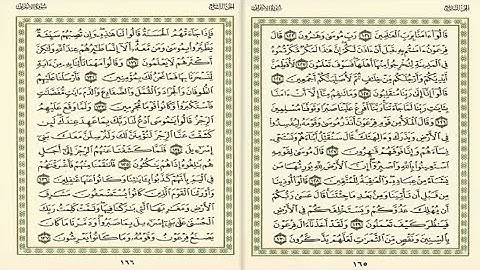 الجزء التاسع
سورة الأعراف
قَالُوٓا۟ ءَامَنَّا بِرَبِّ ٱلْعَٰلَمِينَ ١٢١ رَبِّ مُوسَىٰ وَهَٰرُونَ ١٢٢ قَالَ
فِرْعَوْنُ ءَامَنتُم بِهِۦ قَبْلَ أَنْ ءَاذَنَ لَكُمْ إِنَّ هَٰذَا لَمَكْرٌ مَّكَرْتُمُوهُ
فِى ٱلْمَدِينَةِ لِتُخْرِجُوا۟ مِنْهَآ أَهْلَهَا فَسَوْفَ تَعْلَمُونَ ١٢٣ لَأُقَطِّعَنَّ
أَيْدِيَكُمْ وَأَرْجُلَكُم مِّنْ خِلَٰفٍ ثُمَّ لَأُصَلِّبَنَّكُمْ أَجْمَعِينَ ١٢٤
قَالُوٓا۟ إِنَّآ إِلَىٰ رَبِّنَا مُنقَلِبُونَ ١٢٥ وَمَا تَنقِمُ مِنَّآ إِلَّآ أَنْ ءَامَنَّا
بِـَٔايَٰتِ رَبِّنَا لَمَّا جَآءَتْنَا رَبَّنَآ أَفْرِغْ عَلَيْنَا صَبْرًا وَتَوَفَّنَا مُسْلِمِينَ
١٢٦ وَقَالَ ٱلْمَلَأُ مِن قَوْمِ فِرْعَوْنَ أَتَذَرُ مُوسَىٰ وَقَوْمَهُۥ لِيُفْسِدُوا۟
فِى ٱلْأَرْضِ وَيَذَرَكَ وَءَالِهَتَكَ قَالَ سَنُقَتِّلُ أَبْنَآءَهُمْ وَنَسْتَحْىِۦ
نِسَآءَهُمْ وَإِنَّا فَوْقَهُمْ قَٰهِرُونَ ١٢٧ قَالَ مُوسَىٰ لِقَوْمِهِ
ٱسْتَعِينُوا۟ بِٱللَّهِ وَٱصْبِرُوٓا۟ إِنَّ ٱلْأَرْضَ لِلَّهِ يُورِثُهَا مَن
يَشَآءُ مِنْ عِبَادِهِۦ وَٱلْعَٰقِبَةُ لِلْمُتَّقِينَ ١٢٨ قَالُوٓا۟ أُوذِينَا
مِن قَبْلِ أَن تَأْتِيَنَا وَمِنۢ بَعْدِ مَا جِئْتَنَا قَالَ عَسَىٰ رَبُّكُمْ
أَن يُهْلِكَ عَدُوَّكُمْ وَيَسْتَخْلِفَكُمْ فِى ٱلْأَرْضِ
فَيَنظُرَ كَيْفَ تَعْمَلُونَ ١٢٩ وَلَقَدْ أَخَذْنَآ ءَالَ فِرْعَوْنَ
بِٱلسِّنِينَ وَنَقْصٍ مِّنَ ٱلثَّمَرَٰتِ لَعَلَّهُمْ يَذَّكَّرُونَ ١٣٠
١٦٥
الجزء التاسع
سورة الأعراف
فَإِذَا جَآءَتْهُمُ ٱلْحَسَنَةُ قَالُوا۟ لَنَا هَٰذِهِۦ وَإِن تُصِبْهُمْ سَيِّئَةٌ
يَطَّيَّرُوا۟ بِمُوسَىٰ وَمَن مَّعَهُۥٓ أَلَآ إِنَّمَا طَٰٓئِرُهُمْ عِندَ ٱللَّهِ وَلَٰكِنَّ
أَكْثَرَهُمْ لَا يَعْلَمُونَ ١٣١ وَقَالُوا۟ مَهْمَا تَأْتِنَا بِهِۦ مِنْ ءَايَةٍ
لِّتَسْحَرَنَا بِهَا فَمَا نَحْنُ لَكَ بِمُؤْمِنِينَ ١٣٢ فَأَرْسَلْنَا عَلَيْهِمُ
ٱلطُّوفَانَ وَٱلْجَرَادَ وَٱلْقُمَّلَ وَٱلضَّفَادِعَ وَٱلدَّمَ ءَايَٰتٍ مُّفَصَّلَٰتٍ
فَٱسْتَكْبَرُوا۟ وَكَانُوا۟ قَوْمًا مُّجْرِمِينَ ١٣٣ وَلَمَّا وَقَعَ عَلَيْهِمُ
ٱلرِّجْزُ قَالُوا۟ يَٰمُوسَى ٱدْعُ لَنَا رَبَّكَ بِمَا عَهِدَ عِندَكَ لَئِن
كَشَفْتَ عَنَّا ٱلرِّجْزَ لَنُؤْمِنَنَّ لَكَ وَلَنُرْسِلَنَّ مَعَكَ بَنِىٓ
إِسْرَٰٓءِيلَ ١٣٤ فَلَمَّا كَشَفْنَا عَنْهُمُ ٱلرِّجْزَ إِلَىٰٓ أَجَلٍ
هُم بَٰلِغُوهُ إِذَا هُمْ يَنكُثُونَ ١٣٥ فَٱنتَقَمْنَا مِنْهُمْ فَأَغْرَقْنَٰهُمْ
فِى ٱلْيَمِّ بِأَنَّهُمْ كَذَّبُوا۟ بِـَٔايَٰتِنَا وَكَانُوا۟ عَنْهَا غَٰفِلِينَ ١٣٦
وَأَوْرَثْنَا ٱلْقَوْمَ ٱلَّذِينَ كَانُوا۟ يُسْتَضْعَفُونَ مَشَٰرِقَ
ٱلْأَرْضِ وَمَغَٰرِبَهَا ٱلَّتِى بَٰرَكْنَا فِيهَا وَتَمَّتْ كَلِمَتُ رَبِّكَ
ٱلْحُسْنَىٰ عَلَىٰ بَنِىٓ إِسْرَٰٓءِيلَ بِمَا صَبَرُوا۟ وَدَمَّرْنَا مَا كَانَ
يَصْنَعُ فِرْعَوْنُ وَقَوْمُهُۥ وَمَا كَانُوا۟ يَعْرِشُونَ ١٣٧
١٦٦